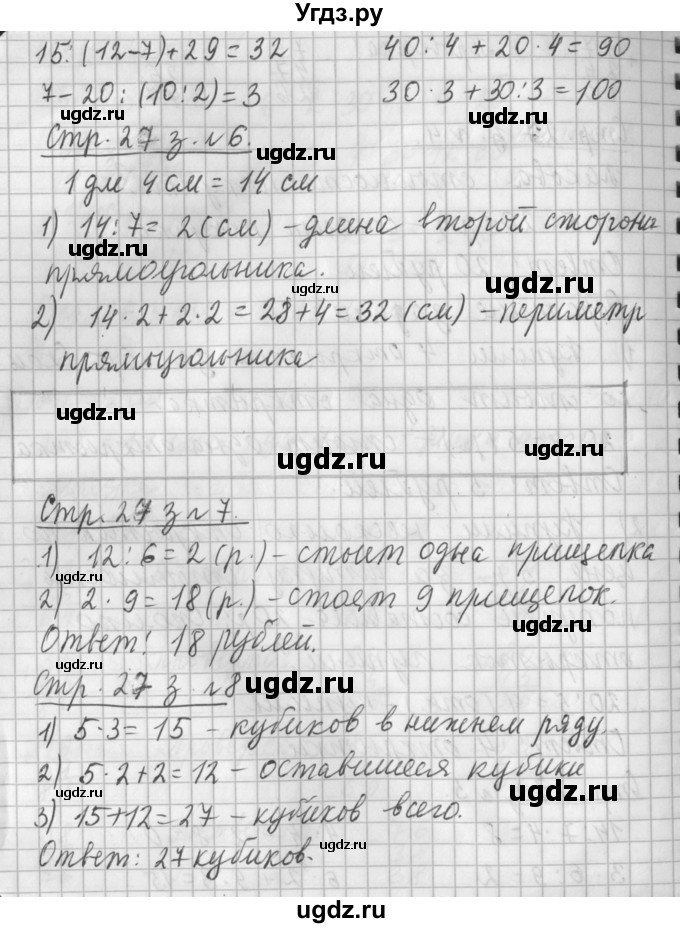 Угдз.ру
15:(12-7)+29=32 40:4+20·4=90
7-20:(10:2)=3 30·3+30:3=100
ugdz.ru ugdz.ru
Стр. 27 з. №6.
ugdz.ru
1 дм 4 см = 14 см
1) 14:7=2(см) – длина второй сторона
прямоугольника.
ugdz.ru ugdz.ru
2) 14·2+2·2=28+4=32 (см) – периметр
прямыугольника
ugdz.ru
ugdz.ru
Стр. 27 з №7.
1) 12:6=2(р.) – стоит одна прищепка
ugdz.ru
2) 2·9=18(р.) – стоят 9 прищепок.
ugdz.ru
Ответ: 18 рублей.
ugdz.ru
Стр. 27 з. №8
ugdz.ru
1) 5·3=15 – кубиков в нижнем ряду
2) 5·2+2=12 – оставшиеся кубики
ugdz.ru ugdz.ru
3) 15+12=27 – кубиков всего.
ugdz.ru
Ответ: 27 кубиков.
ugdz.ru
ugdz.ru